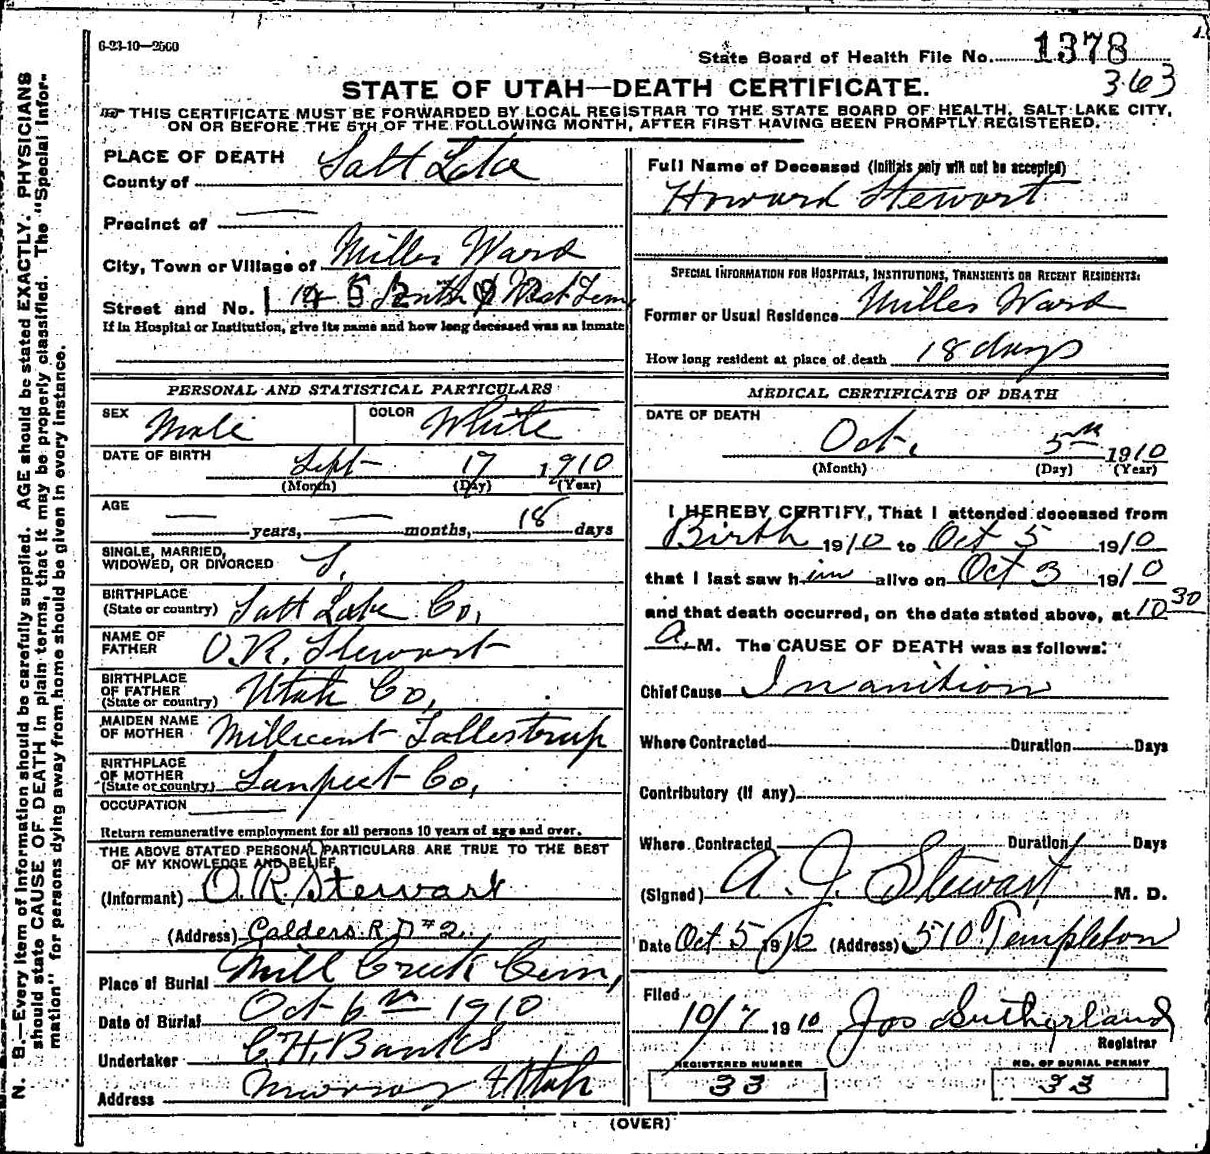 6-23-10-2500
State Board of Health File No. 1378
363
STATE OF UTAH—DEATH CERTIFICATE.
THIS CERTIFICATE MUST BE FORWARDED BY LOCAL REGISTRAR TO THE STATE BOARD OF HEALTH, SALT LAKE CITY,
ON OR BEFORE THE 5TH OF THE FOLLOWING MONTH, AFTER FIRST HAVING BEEN PROMPTLY REGISTERED.
N. B.—Every item of Information should be carefully supplied. AGE should be stated EXACTLY. PHYSICIANS
should state CAUSE OF DEATH in plain terms, that it may be properly classified. The "Special Infor-
mation" for persons dying away from home should be given in every instance.
PLACE OF DEATH
County of Salt Lake
Precinct of —
City, Town or Village of Miller Ward
Street and No. & West Tem
If in Hospital or Institution, give its name and how long deceased was an inmate
PERSONAL AND STATISTICAL PARTICULARS
SEX Male COLOR White
DATE OF BIRTH Sept 17 1910
(Month) (Day) (Year)
AGE — years, — months, 18 days
SINGLE, MARRIED,
WIDOWED, OR DIVORCED S.
BIRTHPLACE
(State or country) Salt Lake Co,
NAME OF
FATHER O.R. Stewart
BIRTHPLACE
OF FATHER
(State or country) Utah Co,
MAIDEN NAME
OF MOTHER Millicent Tallestrup
BIRTHPLACE
OF MOTHER
(State or country) Sanpeet Co,
OCCUPATION —
Return remunerative employment for all persons 10 years of age and over.
THE ABOVE STATED PERSONAL PARTICULARS ARE TRUE TO THE BEST
OF MY KNOWLEDGE AND BELIEF,
(Informant) O.R Stewart
(Address) Calders R D #2
Place of Burial Mill Creek Cem,
Date of Burial Oct 6th 1910
Undertaker C H. Banks
Address Murray Utah
Full Name of Deceased (Initials only will not be accepted)
Howard Stewart
SPECIAL INFORMATION FOR HOSPITALS, INSTITUTIONS, TRANSIENTS OR RECENT RESIDENTS:
Former or Usual Residence Miller Ward
How long resident at place of death 18 days
MEDICAL CERTIFICATE OF DEATH
DATE OF DEATH
Oct. 5th 1910
(Month) (Day) (Year)
I HEREBY CERTIFY, That I attended deceased from
Birth 1910 to Oct 5 1910
that I last saw him alive on Oct 3 1910
and that death occurred, on the date stated above, at 10 30
A. M. The CAUSE OF DEATH was as follows:
Chief Cause Inanition
Where Contracted Duration Days
Contributory (if any)
Where Contracted Duration Days
(Signed) A. J. Stewart M. D.
Date Oct 5 1910 (Address) 510 Templeton
Filed
10/7 1910 Jos Sutherland
Registrar
REGISTERED NUMBER
33
NO. OF BURIAL PERMIT
33
(OVER)